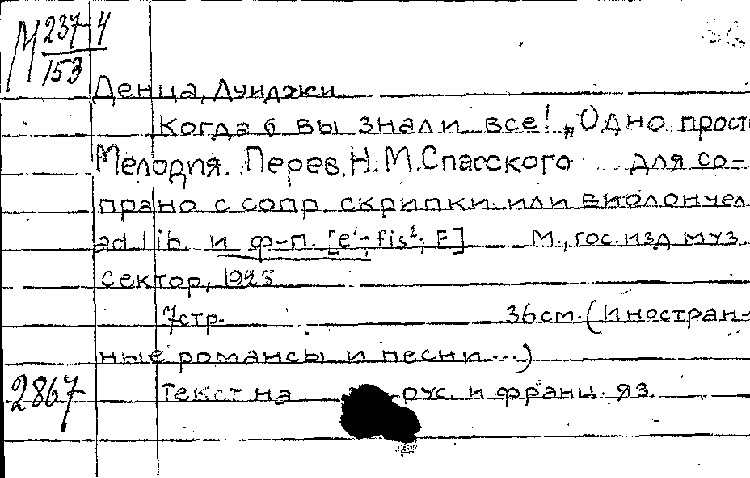 М 237-4
153
Денца, Луиджи
Когда б вы знали все! „Одно прост
Мелодия. Перев. Н. М. Спасского для со-
прано с сопр. скрипки или виолончел
ad lib. и ф-п. [e¹-fis²; E] М., гос. изд. муз.
сектор, 1925
7стр. 36см. (Иностран-
ные романсы и песни...)
2867 Текст на рус. и франц. яз.